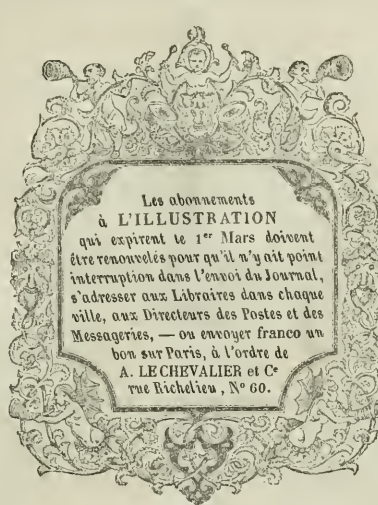 Les abonnements
à L'ILLUSTRATION
qui expirent le 1er Mars doivent
être renouvelés pour qu'il n'y ait point
interruption dans l'envoi du Journal,
s'adresser aux Libraires dans chaque
ville, aux Directeurs des Postes et des
Messageries, — ou envoyer franco un
bon sur Paris, à l'ordre de
A. LECHEVALIER et Ce
rue Richelieu, No 60.